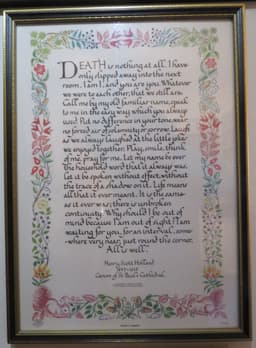 DEATH is nothing at all. I have
only slipped away into the next
room. I am I, and you are you. Whatever
we were to each other, that we still are.
Call me by my old familiar name, speak
to me in the easy way which you always
used. Put no difference in your tone, wear
no forced air of solemnity or sorrow. Laugh
as we always laughed at the little jokes
we enjoyed together. Play, smile, think
of me, pray for me. Let my name be ever
the household word that it always was.
Let it be spoken without effect, without
the trace of a shadow on it. Life means
all that it ever meant. It is the same
as it ever was; there is unbroken
continuity. Why should I be out of
mind because I am out of sight? I am
waiting for you, for an interval, some-
-where very near, just round the corner.
All is well.
Henry Scott Holland
1847-1918
Canon of St Paul's Cathedral